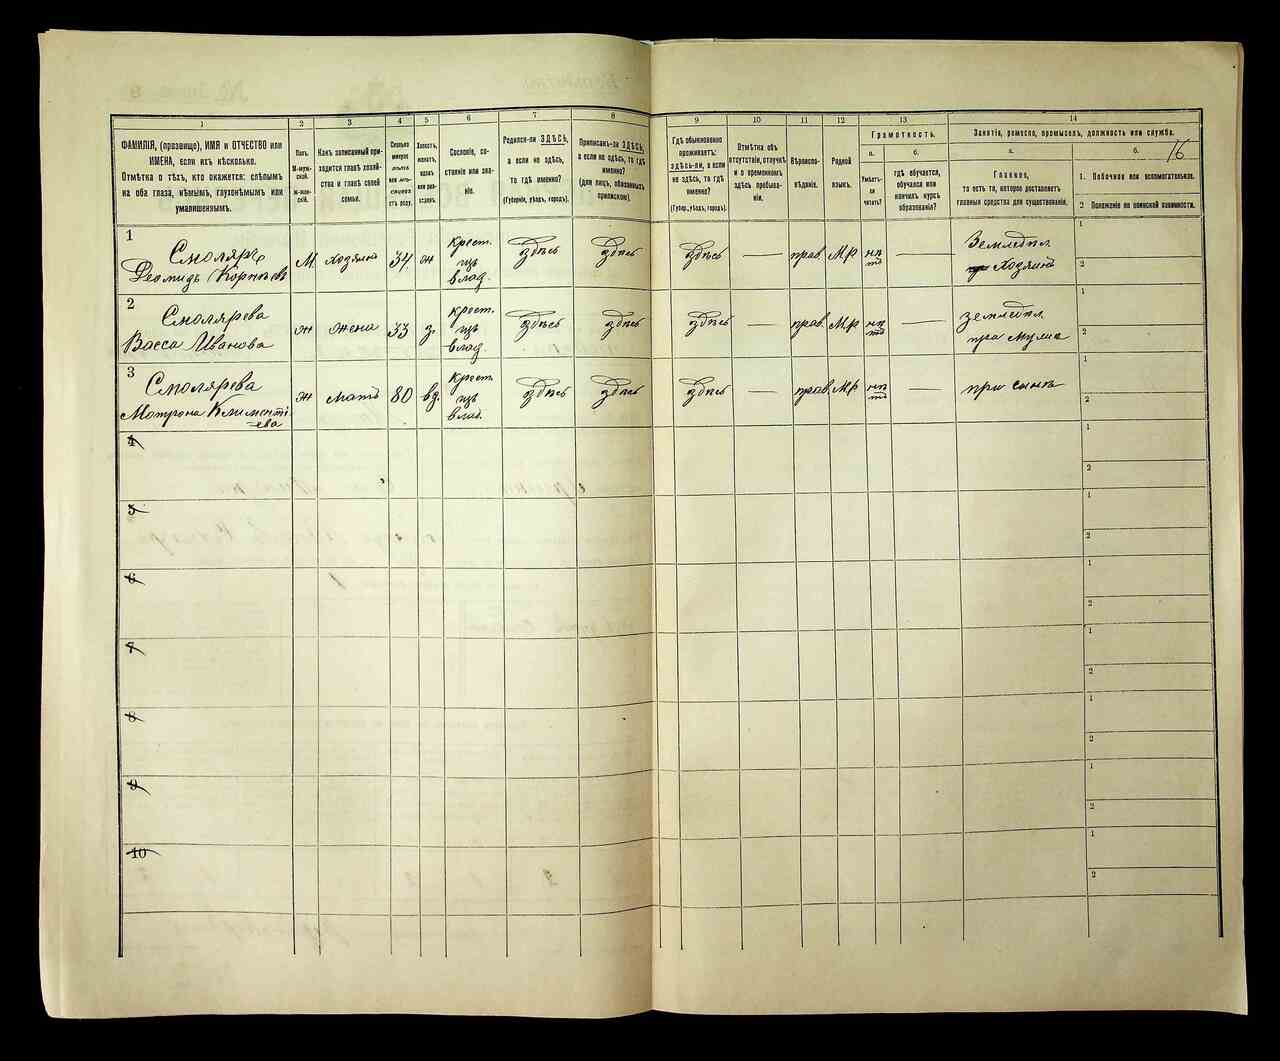 1
2
3
4
5
6
7
8
9
10
11
12
13
14
ФАМИЛІЯ, (прозвище), ИМЯ и ОТЧЕСТВО или
ИМЕНА, если ихъ нѣсколько.
Отмѣтка о тѣхъ, кто окажется: слѣпымъ
на оба глаза, нѣмымъ, глухонѣмымъ или
умалишеннымъ.
Полъ.
М-муж-
ской.
Ж-жен-
скій.
Какъ записанный при-
ходится главѣ хозяй-
ства и главѣ своей
семьи.
Сколько
минуло
лѣтъ
или мѣ-
сяцевъ
отъ роду.
Холостъ,
женатъ,
вдовъ
или раз-
веденъ.
Сословіе, со-
стояніе или зва-
ніе.
Родился-ли ЗДѢСЬ,
а если не здѣсь,
то гдѣ именно?
(Губернія, уѣздъ, городъ).
Приписанъ-ли ЗДѢСЬ,
а если не здѣсь, то гдѣ
именно?
(для лицъ, обязанныхъ
припискою).
Гдѣ обыкновенно
проживаетъ:
здѣсь-ли, а если
не здѣсь, то гдѣ
именно?
(Губер., уѣздъ, городъ).
Отмѣтка объ
отсутствіи, отлучкѣ
и о временномъ
здѣсь пребыва-
ніи.
Вѣроиспо-
вѣданіе.
Родной
языкъ.
Грамотность.
а.
Умѣетъ-
ли
читать?
б.
гдѣ обучается,
обучался или
кончилъ курсъ
образованія?
Занятіе, ремесло, промыселъ, должность или служба.
а.
Главное,
то есть то, которое доставляетъ
главныя средства для существованія.
б.
16
1. Побочное или вспомогательное.
2 Положеніе по воинской повинности.
1
Смоляръ
Деомидъ Корнѣевъ
М
хозяинъ
34
ж
Крест.
изъ
влад.
здѣсь
здѣсь
здѣсь
—
прав.
МР
нѣтъ
—
Земледѣл.
Хозяинъ
1
2
2
Смолярева
Васса Иванова
ж
жена
33
з.
Крест.
изъ
влад.
здѣсь
здѣсь
здѣсь
—
прав.
МР
нѣтъ
—
земледѣл.
при мужѣ
1
2
3
Смолярева
Мотрона Климентi
=ева
ж
мать
80
вд.
Крест.
изъ
влад.
здѣсь
здѣсь
здѣсь
—
прав.
МР
нѣтъ
—
при сынѣ
1
2
4
1
2
5
1
2
6
1
2
7
1
2
8
1
2
9
1
2
10
1
2